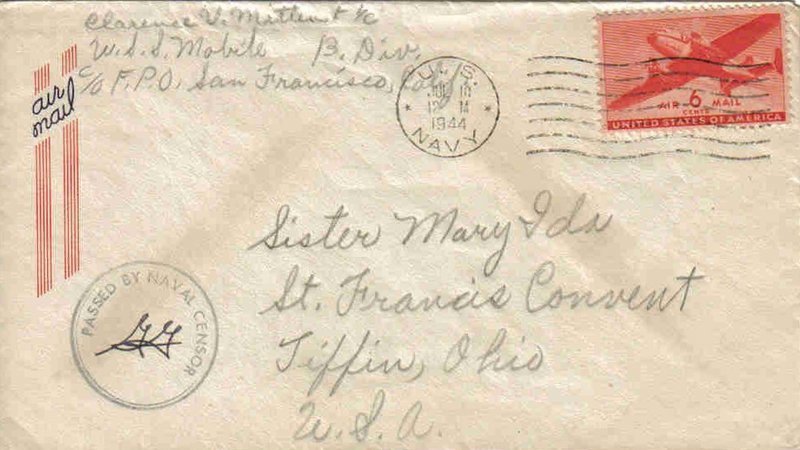 Clarence V. Mitten F 1/c
U.S.S. Mobile B. Div.
c/o F.P.O. San Francisco, Calif.
air mail
U.S.
JUL
12 M
1944
NAVY
AIR 6 MAIL
CENTS
UNITED STATES OF AMERICA
Sister Mary Ida
St. Francis Convent
Tiffin, Ohio
U.S.A.
PASSED BY NAVAL CENSOR